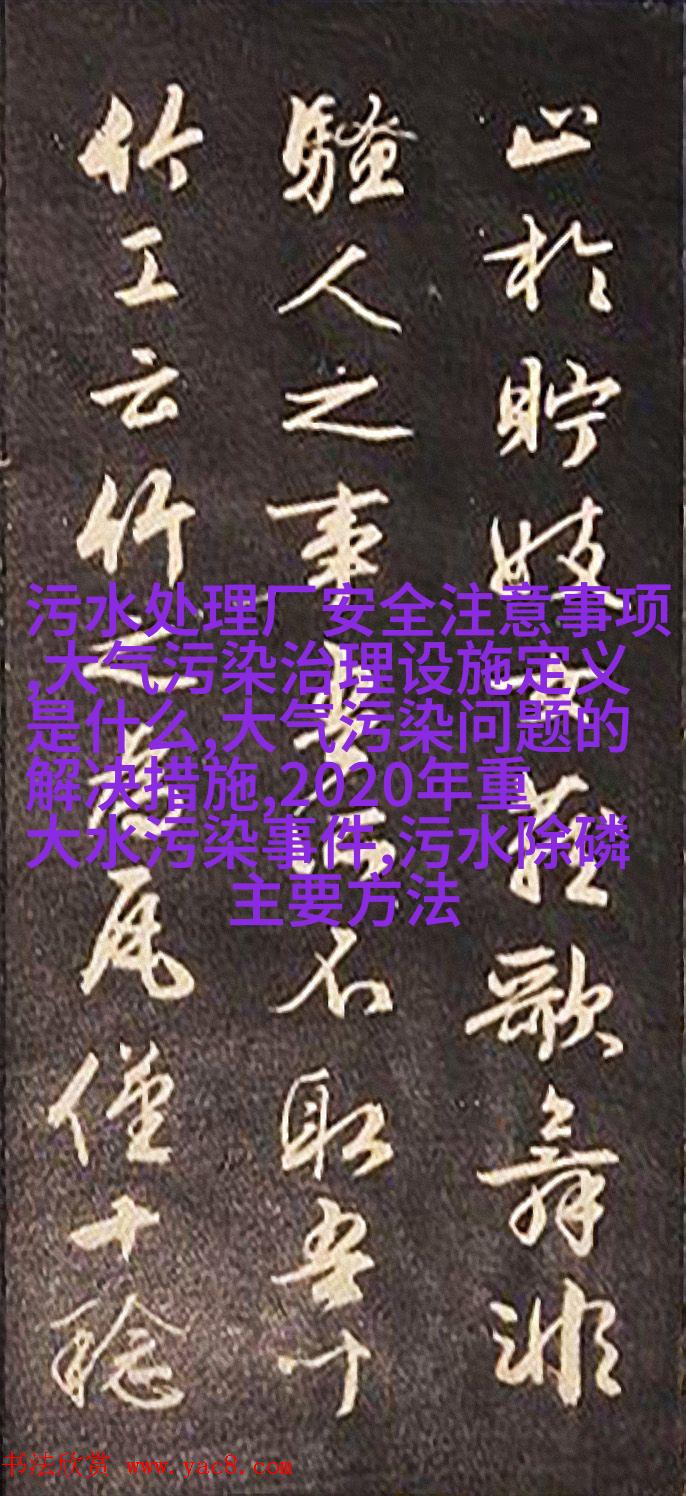 止於貯妓女藏歌舞非
騷人之事吾所不取吾
竹工云竹之為瓦僅十稔
污水处理厂安全注意事项
,大气污染治理设施定义
是什么,大气污染问题的
解决措施,2020年重
大水污染事件,污水除磷
主要方法
书法欣赏 www.yac8.com